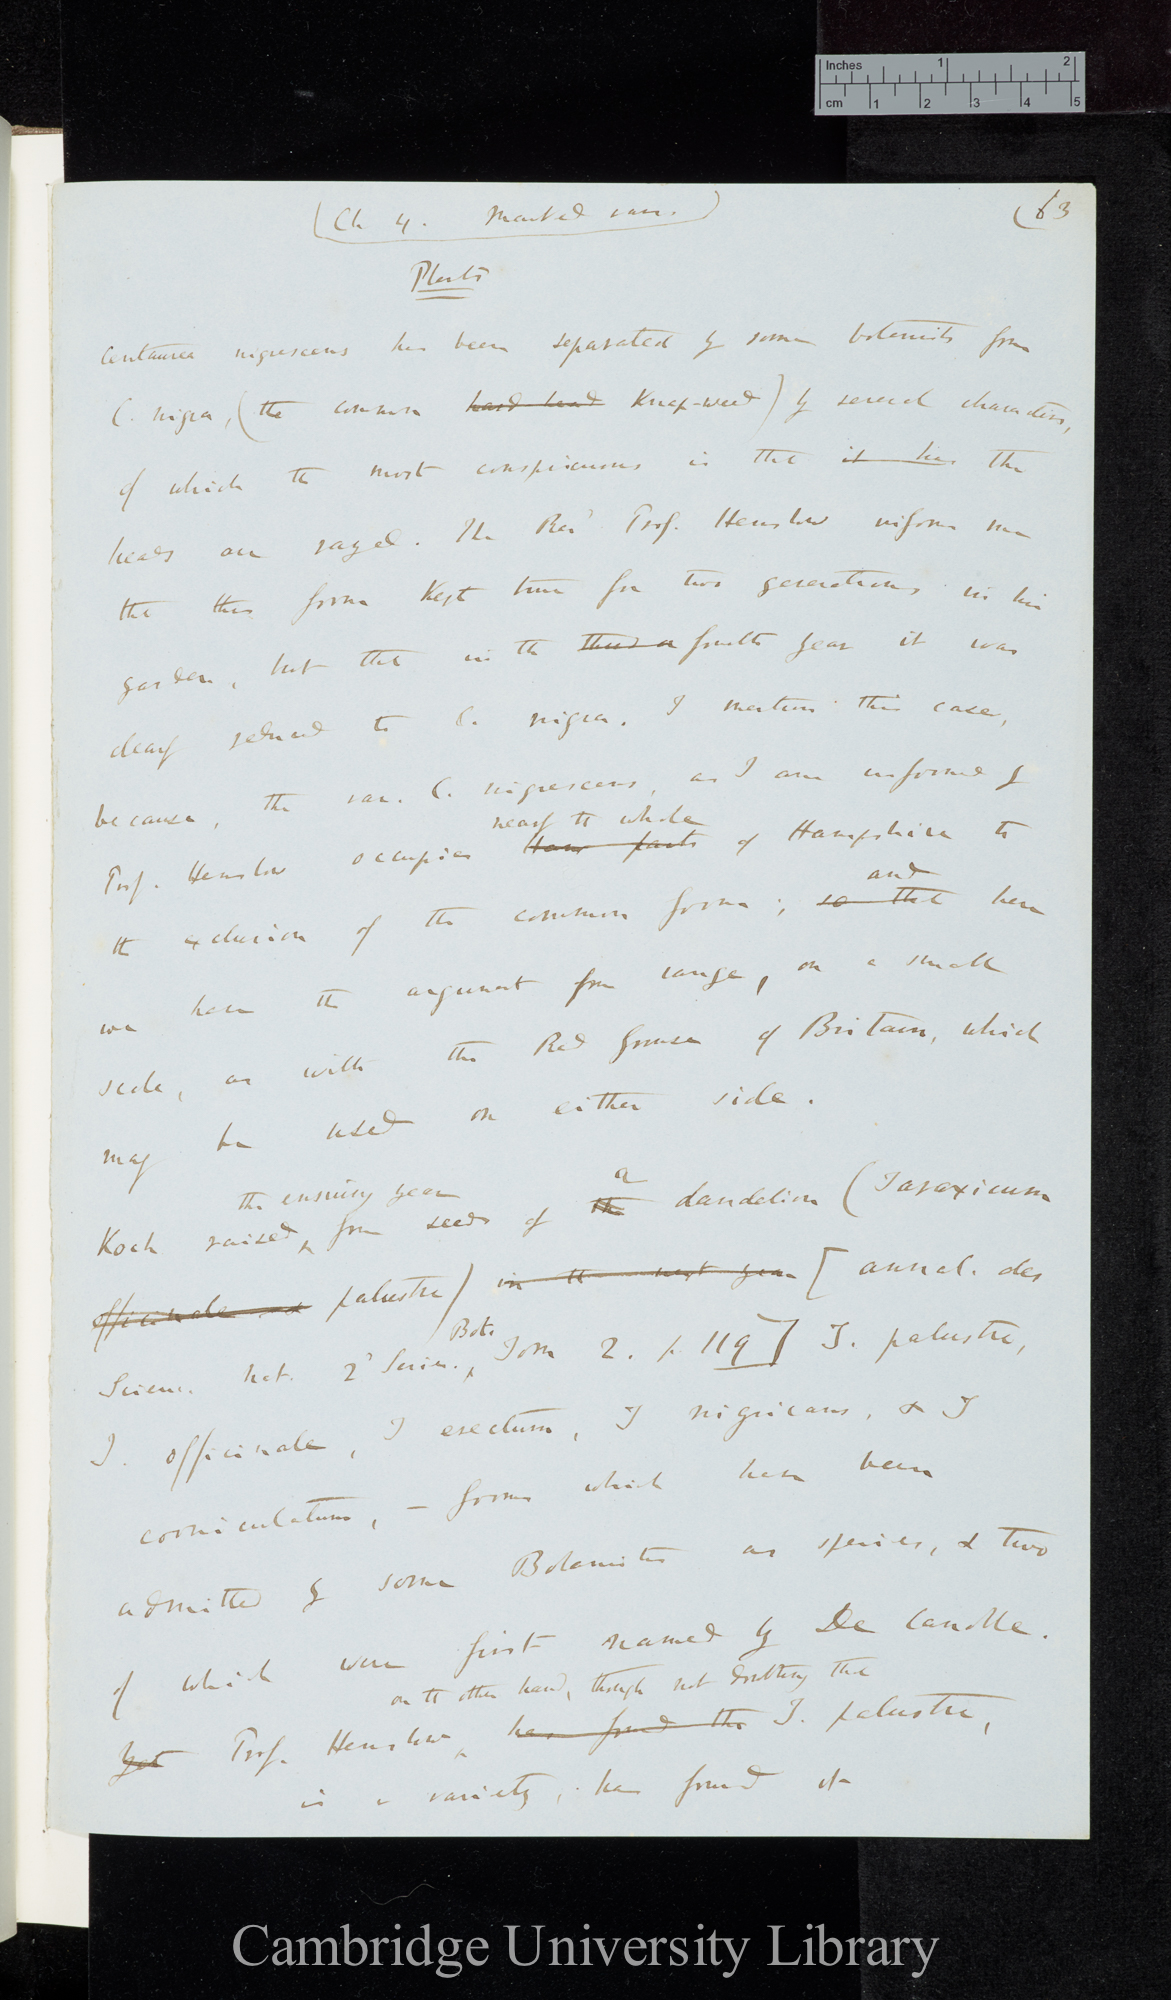 Inches 1 2
cm 1 2 3 4 5
(Ch 4. Marked vars.)
(63
Plants
Centaurea nigrescens has been separated by some botanists from
C. nigra, (the common hard head Knap-weed) by several characters,
of which the most conspicuous is that it has the
heads are rayed. The Revd Prof. Henslow informs me
that this form kept true for two generations in his
garden, but that in the third or fourth year it was
clearly reduced to C. nigra. I mention this case,
because, the var. C. nigrescens, as I am informed by
nearly the whole
Prof. Henslow occupies parts of Hampshire to
and
the exclusion of the common form; so that here
we have the argument from range, on a small
scale, as with the Red Grouse of Britain, which
may be used on either side.
the ensuing year
a
Koch raised from seeds of the dandelion (Taraxicum
officinale palustre) in the next year [annal. des
Bot.
Scienc. nat. 2d Series. Tom 2. p. 119] T. palustre,
T. officinale, T erectum, T nigricans, & T
corniculatum, – forms which have been
admitted by some Botanists as species, & two
of which were first named by De Candolle.
on the other hand, though not doubting that
Yet Prof. Henslow has found that T. palustre,
is a variety, has found it
Cambridge University Library